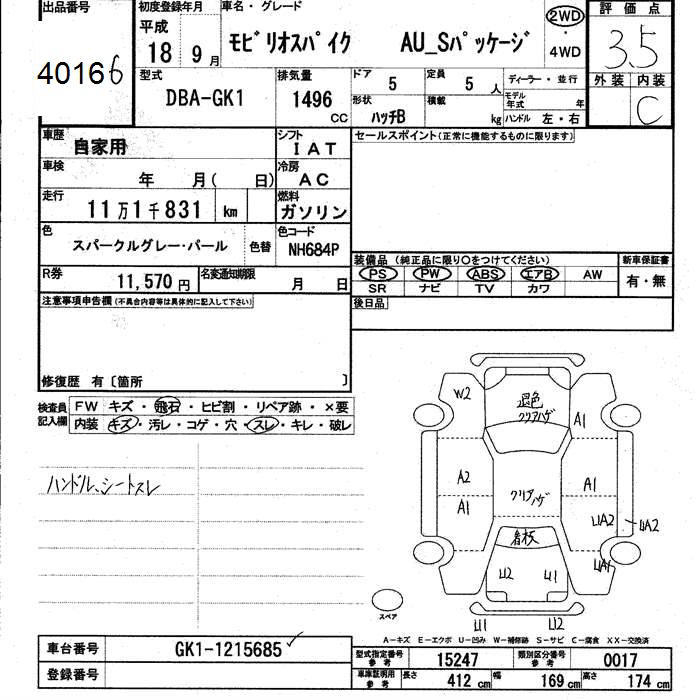 出品番号
40166
初度登録年月
平成
18 9月
車名・グレード
モビリオスパイク AU_Sパッケージ
2WD
・
4WD
評価点
3.5
外装 内装
C
型式
DBA-GK1
排気量
1496
CC
ドア
5
定員
5 人
ディーラー・並行
形状
ハッチB
積載
kg
モデル年式
年
ハンドル 左・右
車歴
自家用
シフト
IAT
セールスポイント(正常に機能するものに限ります)
車検
年 月( 日)
冷房
AC
走行
11万1千831 km
燃料
ガソリン
色
スパークルグレー・パール
色替
色コード
NH684P
装備品 (純正品に限り○をつけてください)
新車保証書
PS PW ABS エアB AW
有・無
SR ナビ TV カワ
R券
11,570円
名変通知期限
月 日
後日品
注意事項申告欄(不具合内容等は具体的に記入して下さい)
修復歴 有〔箇所 〕
検査員
記入欄
FW キズ・飛石・ヒビ割・リペア跡・×要
内装 キズ・汚レ・コゲ・穴・スレ・キレ・破レ
ハンドル、シートスレ
W2
退色
クリアハゲ
A1
A2
クリアハゲ
A1
A1
UA2
UA2
看板
UA1
U2
U1
スペア
U1
U2
A-キズ E-エクボ U-凹み W-補修跡 S-サビ C-腐食 XX-交換済
車台番号
GK1-1215685
登録番号
型式指定番号
参考
15247
類別区分番号
参考
0017
車庫証明用
参考
長さ
412 cm
幅
169 cm
高さ
174 cm